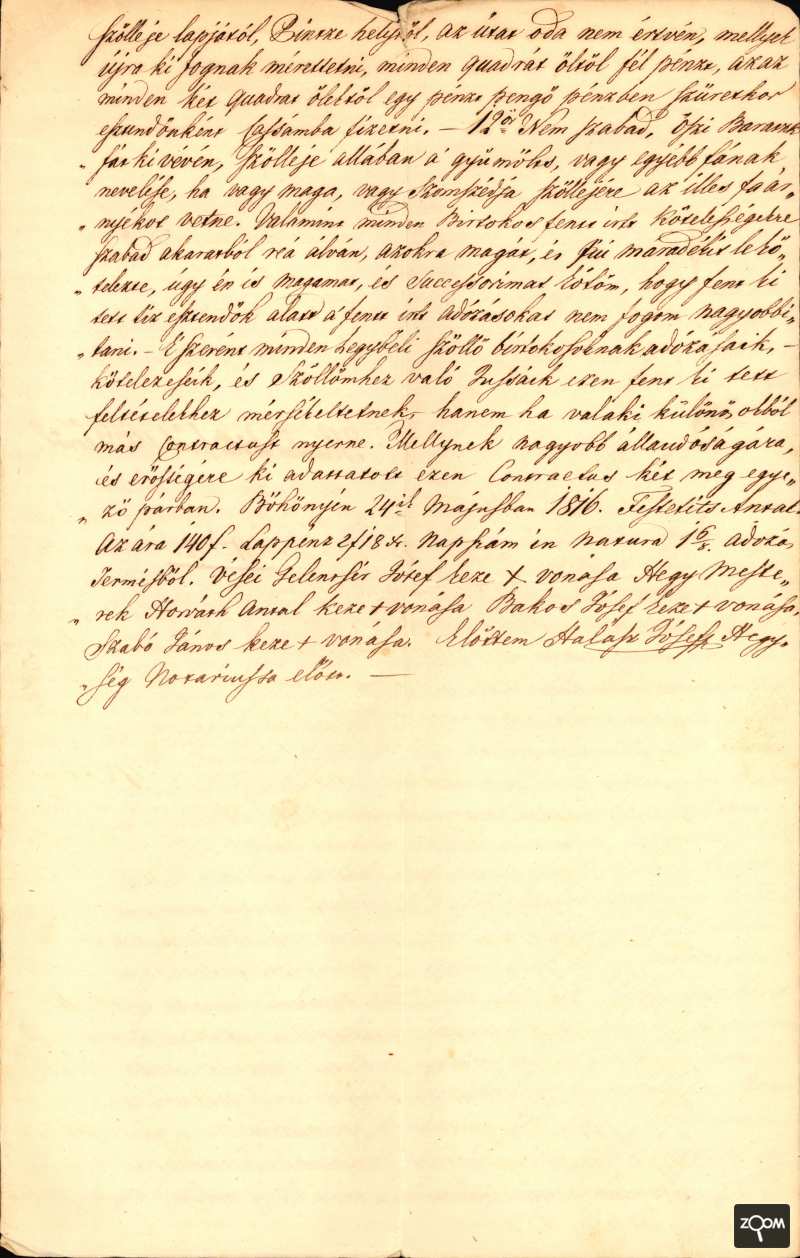 szölleje lapjától, Pintze helytöl, az útat oda nem értvén, mellyek
újra ki fognak mérettetni, minden quadrát öltöl fél pénzt, azaz
minden két quadrat ölektöl egy pénzt pengö pénzben szüretkor
esztendönként Cassámba fizetni. — 12ör Nem szabad, Öszi Baratzk
„ fát ki vévén, szölleje allában a' gyümölts, vagy egyébb fának
nevelése, ha vagy maga, vagy Szomszédja szöllejére az illes fa ár„
„ nyékot vetne. Valamint minden Birtokos fentt irtt Kötelességekre
szabad akaratból reá álván, azokra magát, és fiú maradékit le kö„
„ telezte, úgy én is magamat, és Successorimat kötöm, hogy fent ki
tett tiz esztendök alatt a' fentt irt adózásokat nem fogom nagyobbi„
„ tani. – E' szerent minden hegybéli szöllö birtokosoknak adózásaik, –
kötelezéseik, és Szöllömhez való Jussaik ezen fent ki tett
feltételekhez mérsékeltetnek, hanem ha valaki különös okból
más Contractust nyerne. Mellynek nagyobb állandóságára,
és erösségére ki adattatott ezen Contractus két meg egye„
„ zö párban. Böhönyén 24ik Májusban 1816. Festetits Antal.
Az ára 140f. Lappenz 2f 18 x. Napszám in natura 1 6/8. adózó
Termésböl. Vései Gelentsér Jósef keze + vonása Hegy Meste„
„ rek Horváth Antal keze + vonása Bakos Jósef keze + vonása,
Szabó János keze + vonása. Elöttem Halász Jósef Hegy„
„ ség Notáriussa elött. —
ZOOM